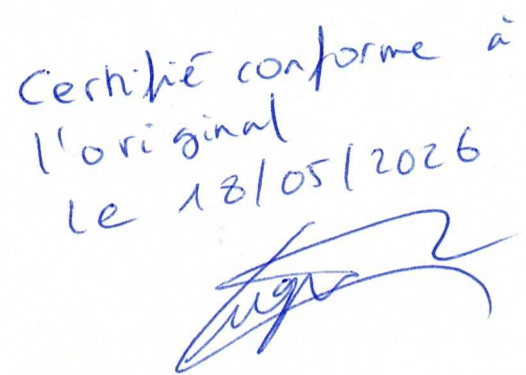 Certifié conforme à
l'original
le 18/05/2026